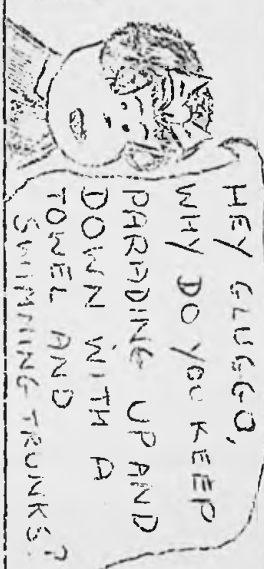 HEY GLUGGO,
WHY DO YOU KEEP
PARADING UP AND
DOWN WITH A
TOWEL AND
SWIMNING TRUNKS?